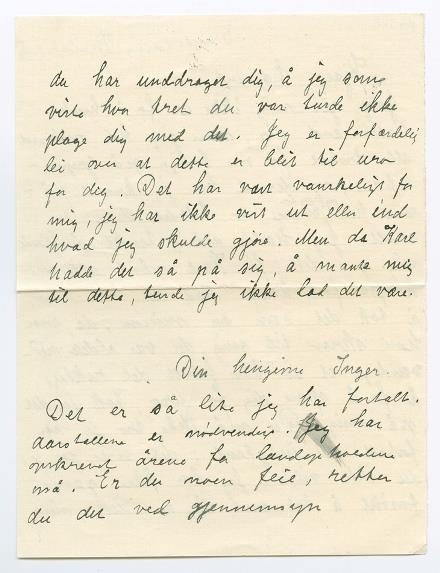 du har unddraget dig, å jeg som
viste hvor tret du var turde ikke
plage dig med det. Jeg er forfærdelig
lei over at dette er blit til uro
for dig. Det har vært vanskeligt for
mig, jeg har ikke vist ut eller ind
hvad jeg skulde gjøre. Men da Karl
hadde det så på sig, å mante mig
til dette, turde jeg ikke lad det være.
Din hengivne Inger.
Det er så lite jeg har fortalt.
aarstallene er nødvendige. Jeg har
opskrevet årene for
må. Er du noen feie, retter
du det ved gjennemsyn